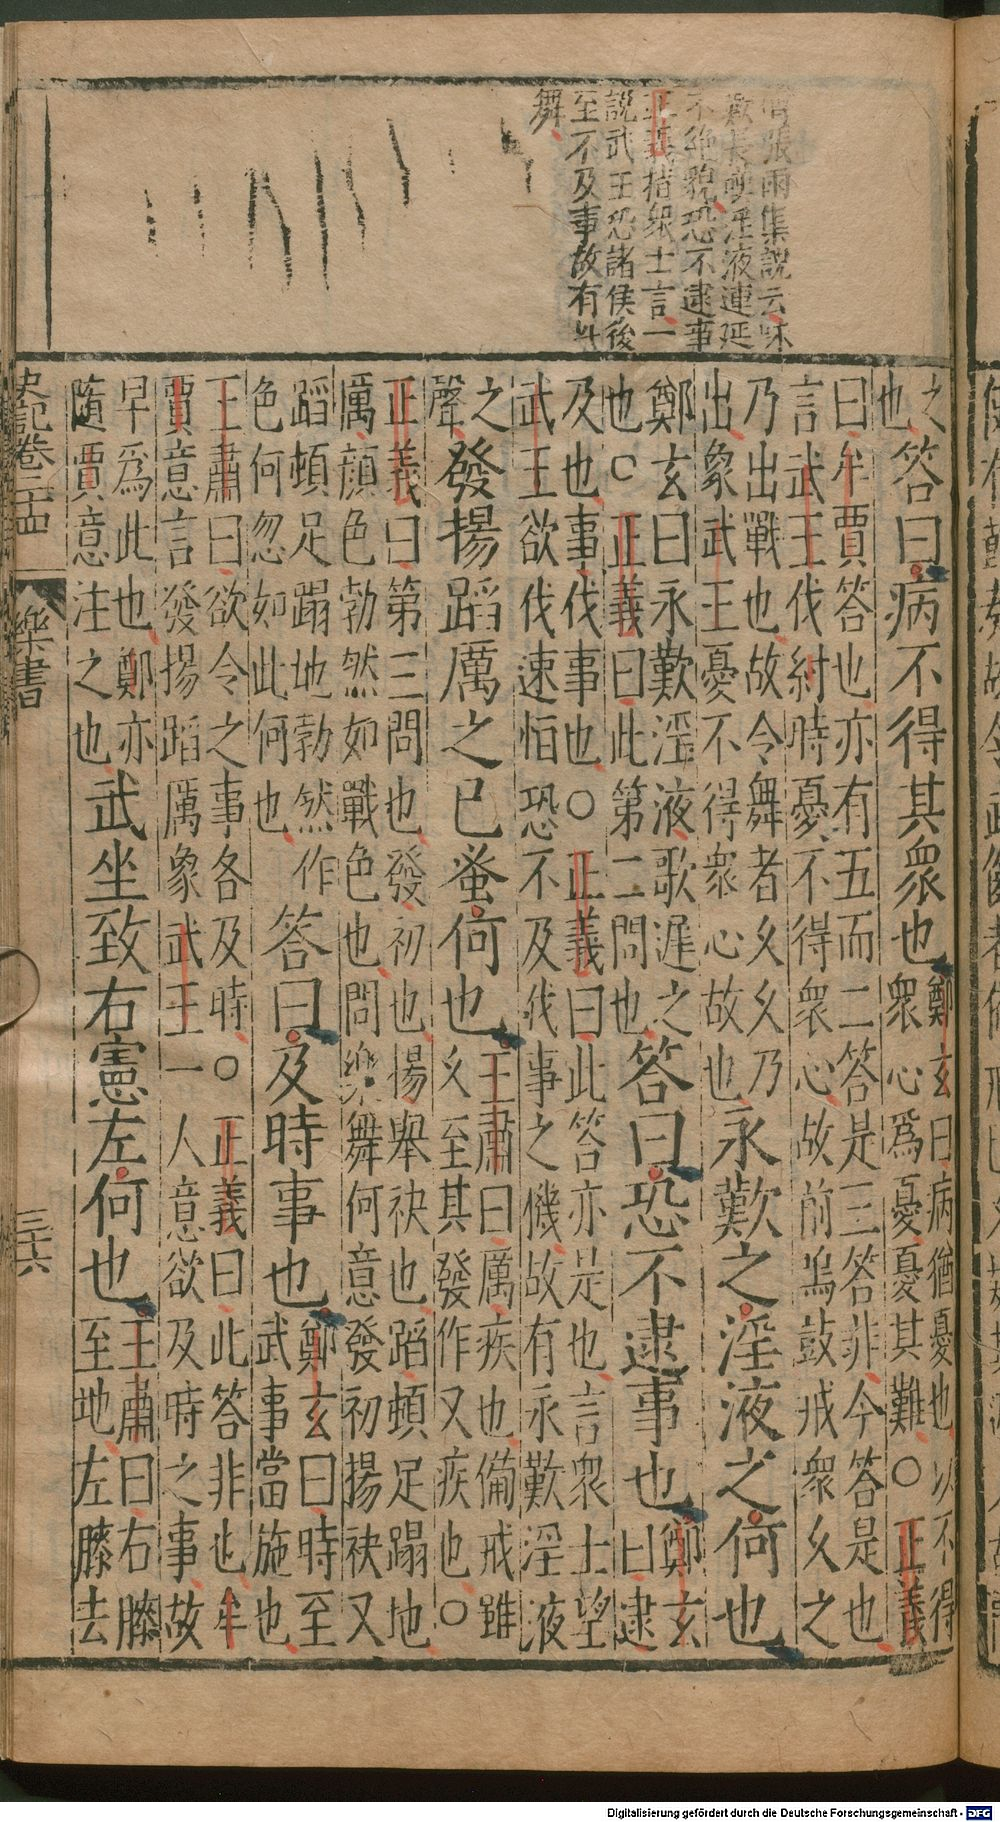 張雨集說云咏
歎長聲淫液連延
不絕貌恐不逮事
正義指衆士言一
說武王恐諸侯後
至不及事故有此
舞
之
也
答曰病不得其衆也
鄭玄曰病猶憂也以不得
衆心爲憂憂其難○正義
曰牟賈答也亦有五而二答是三答非今答是也
言武王伐紂時憂不得衆心故前鳴鼓戒衆久之
乃出戰也故令舞者久久乃
出象武王憂不得衆心故也
永歎之淫液之何也
鄭玄曰永歎淫液歌遲之
也○正義曰此第二問也
答曰恐不逮事也
鄭玄
曰逮
及也事伐事也○正義曰此答亦是也言衆士望
武王欲伐速恒恐不及伐事之機故有永歎淫液
之
聲
發揚蹈厲之已蚤何也
王肅曰厲疾也備戒雖
久至其發作又疾也○
正義曰第三問也發初也揚舉袂也蹈頓足蹋地
厲顏色勃然如戰色也問樂舞何意發初揚袂又
蹈頓足蹋地勃然作
色何忽如此何也
答曰及時事也
鄭玄曰時至
武事當施也
王肅曰欲令之事各及時○正義曰此答非也牟
賈意言發揚蹈厲象武王一人意欲及時之事故
早爲此也鄭亦
隨賈意注之也
武坐致右憲左何也
王肅曰右膝
至地左膝去
史記卷二十四
樂書
三十六
Digitalisierung gefördert durch die Deutsche Forschungsgemeinschaft - DFG